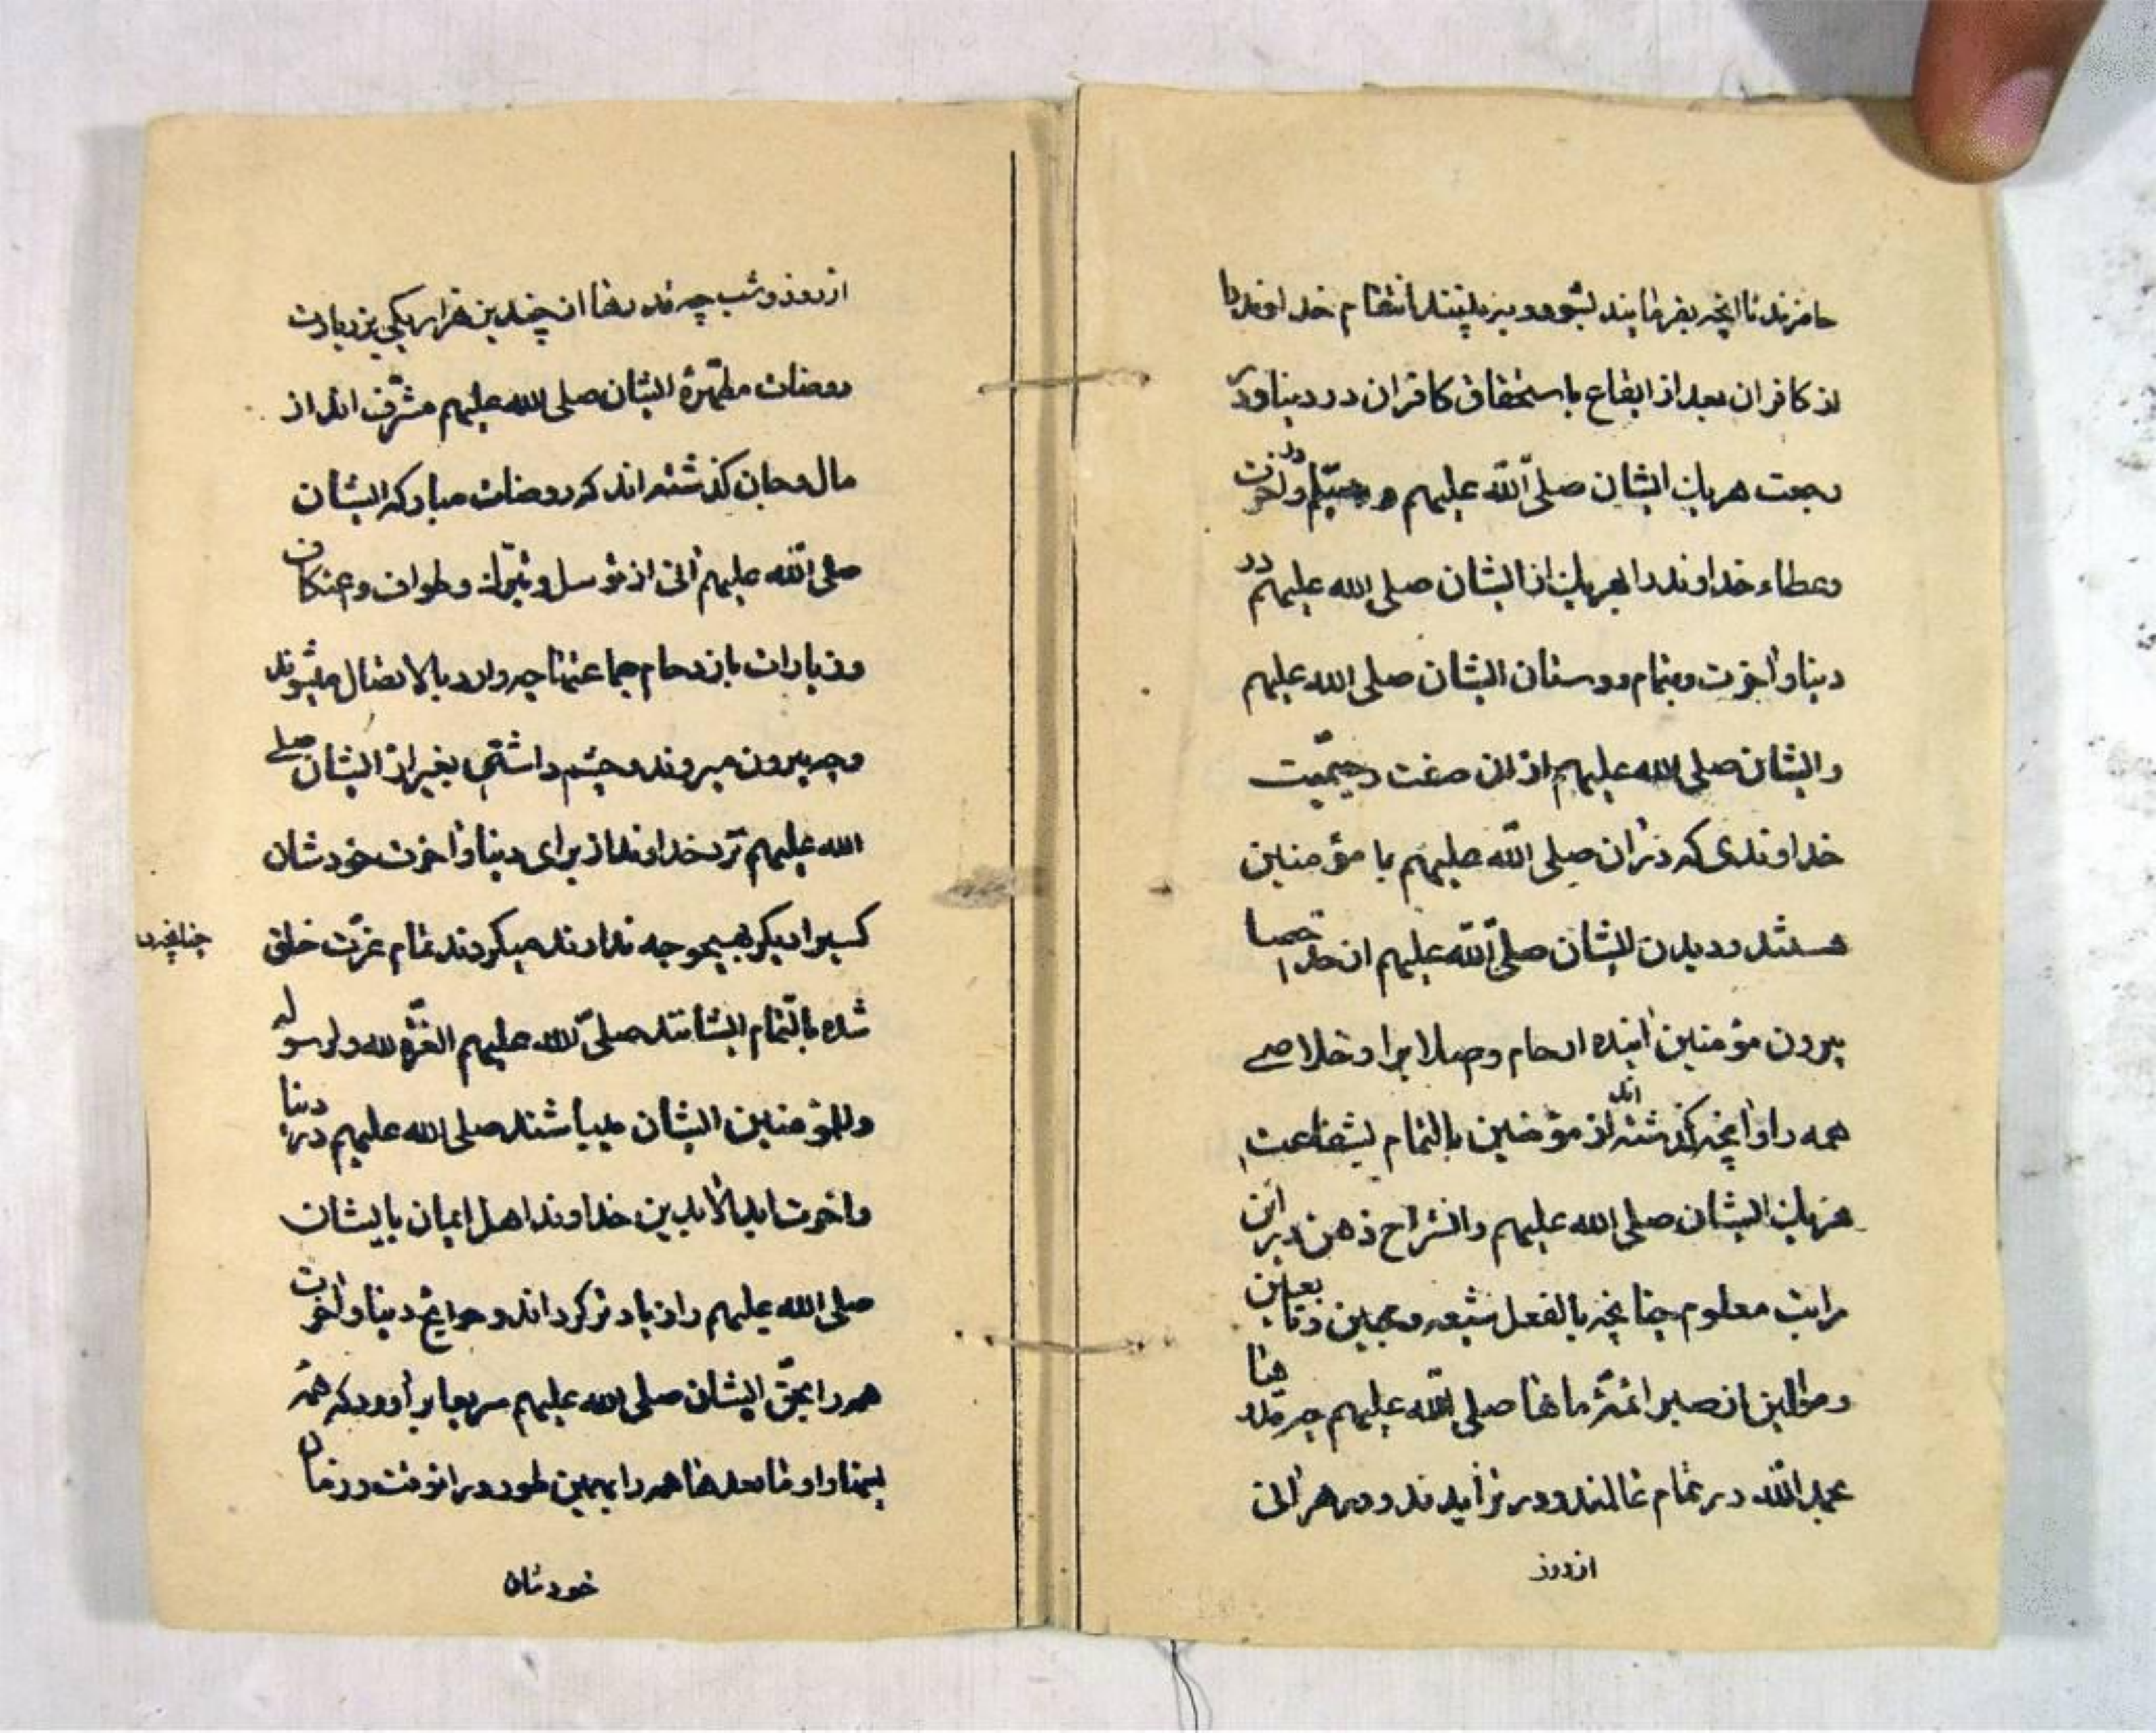 حاضرند تا آنچه بفرمایند بشود و ببینند انتقام خداوند را
از کافران بعد از ایقاع باستحقاق کافران در دنیا و در
رجعت هریك ایشان صلی الله علیهم و در آخرت
وعطاء خداوند را بهریك از ایشان صلی الله علیهم در
دنیا و آخرت و بتمام دوستان ایشان صلی الله علیهم
و ایشان صلی الله علیهم از ان صفت رحیمیت
خداوندی که در ان صلی الله علیهم با مؤمنین
هستند و دیدن ایشان صلی الله علیهم ان
بیرون مؤمنین آینده ارحام و اصلاب را و خلاصی
همه را و آنچه گذشته اند از مؤمنین بالتمام بشفاعت
هریك ایشان صلی الله علیهم و انشراح ذهن در این
مراتب معلوم چنانچه بالفعل شیعه و محبین و تابعین
و موالین از صبر ائمه ماها صلی الله علیهم چه قدرها
بحمد الله در تمام عالمند و در تزایدند و در هر آن
از روز
از روز و شب چه قدرها از چندین هزار یکی بزیارت
روضات مطهرهٔ ایشان صلی الله علیهم مشرف اند از
مال و جان گذشته اند که روضات مبارکه ایشان
صلی الله علیهم آنی از توسل و تبرك و طواف و عتکاف
و زیارات بازدحام جماعتها چه وارد بالاتصال میشوند
و چه بیرون میروند و چشم داشتی بغیر از ایشان صلی
الله علیهم نزد خداوند از برای دنیا و آخرت خودشان
کسیرا دیگر بهیچوجه ندارند میگردند تمام عزت خلق
چنانچه
شده بالتمام ایشانند صلی الله علیهم العزة لله و لرسوله
و للمؤمنین ایشان میباشند صلی الله علیهم در دنیا
و آخرت ابد الابدین خداوند اهل ایمان بایشان
صلی الله علیهم را زیادتر کرداند و حوایج دنیا و آخرت
همه را بحق ایشان صلی الله علیهم سریعا برآورد که همه
بینا و اوفا بعدها همه را بهمین طور در انوقت در زمان
خودشان